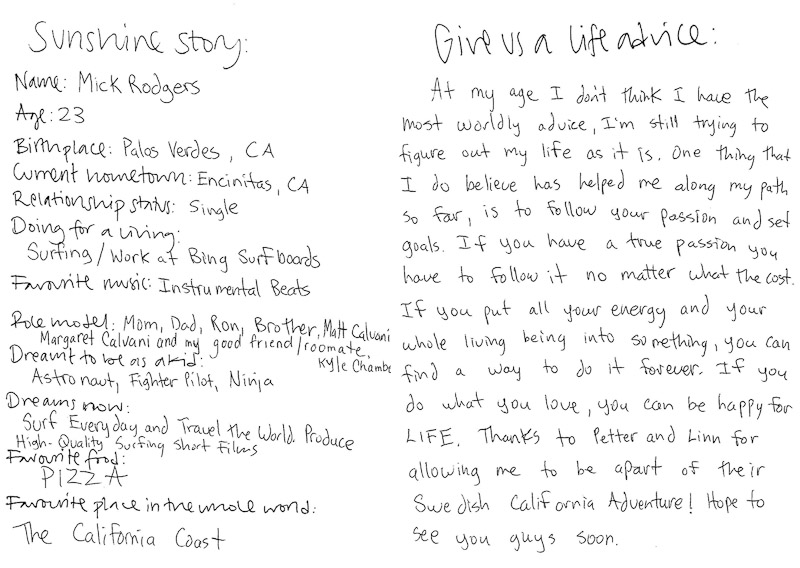 Sunshine story:
Name: Mick Rodgers
Age: 23
Birthplace: Palos Verdes, CA
Current hometown: Encinitas, CA
Relationship status: Single
Doing for a living:
Surfing/Work at Bing Surfboards
Favourite music: Instrumental Beats
Role model: Mom, Dad, Ron, Brother, Matt Calvani
Margaret Calvani and my good friend/roomate,
Kyle Chambe
Dreamt to be as a kid:
Astronaut, Fighter Pilot, Ninja
Dreams now:
Surf Everyday and Travel the World Produce
High-Quality Surfing Short Films
Favourite food:
PIZZA
Favourite place in the whole world:
The California Coast
Give us a life advice:
At my age I don't think I have the
most worldly advice, I'm still trying to
figure out my life as it is. One thing that
I do believe has helped me along my path
so far, is to follow your passion and set
goals. If you have a true passion you
have to follow it no matter what the cost.
If you put all your energy and your
whole living being into something, you can
find a way to do it forever. If you
do what you love, you can be happy for
LIFE. Thanks to Petter and Linn for
allowing me to be apart of their
Swedish California Adventure! Hope to
see you guys soon.